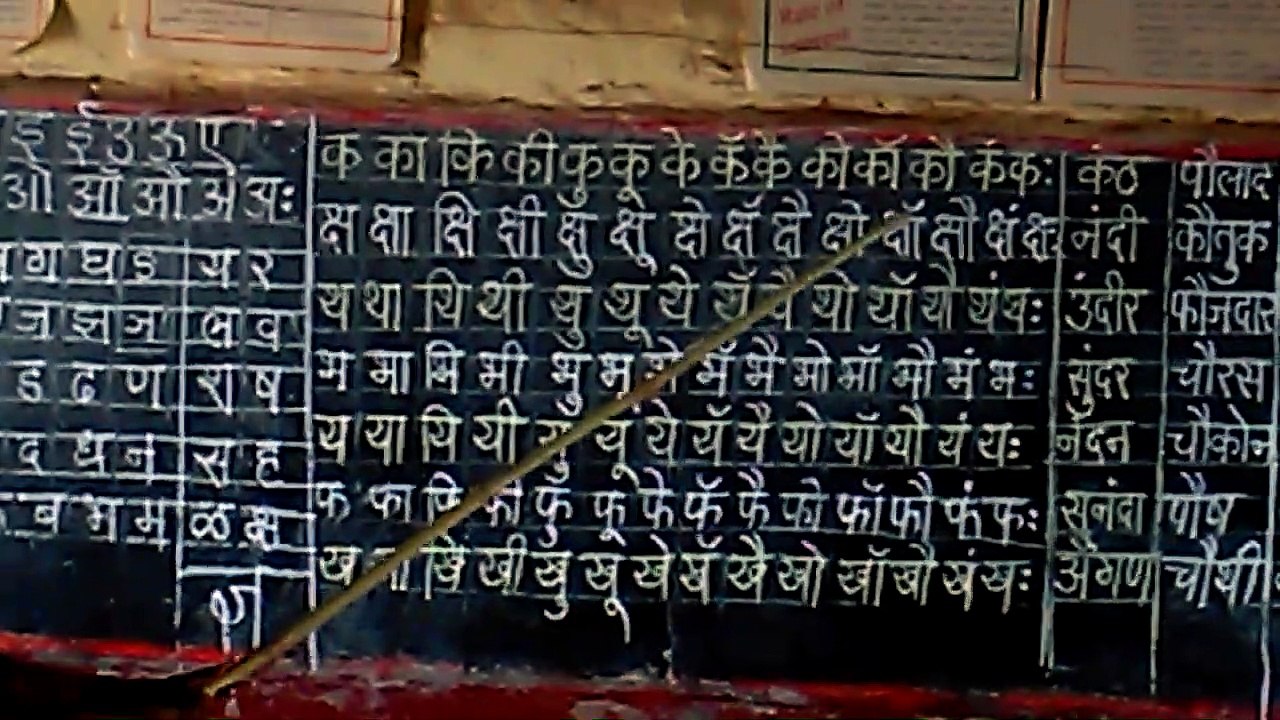 इ ई उ ऊ ए
ओ ऑ औ अं अः
ग घ ङ य र
ज झ ञ ल व
ड ढ ण श ष
द ध न स ह
ब भ म ळ क्ष
ज्ञ
क का कि की कु कू के कॅ कै को कॉ कौ कं कः कंठ पोलाद
क्ष क्षा क्षि क्षी क्षु क्षू क्षे क्षॅ क्षै क्षो क्षॉ क्षौ क्षं क्षः नंदी कौतुक
थ था थि थी थु थू थे थॅ थै थो थॉ थौ थं थः उंदीर फौजदार
भ भा भि भी भु भू भे भॅ भै भो भॉ भौ भं भः सुंदर चौरस
य या यि यी यु यू ये यॅ यै यो यॉ यौ यं यः नंदन चौकोन
फ फा फि फी फु फू फे फॅ फै फो फॉ फौ फं फः सुनंदा पौष
ख खा खि खी खु खू खे खॅ खै खो खॉ खौ खं खः अंगण चौथी